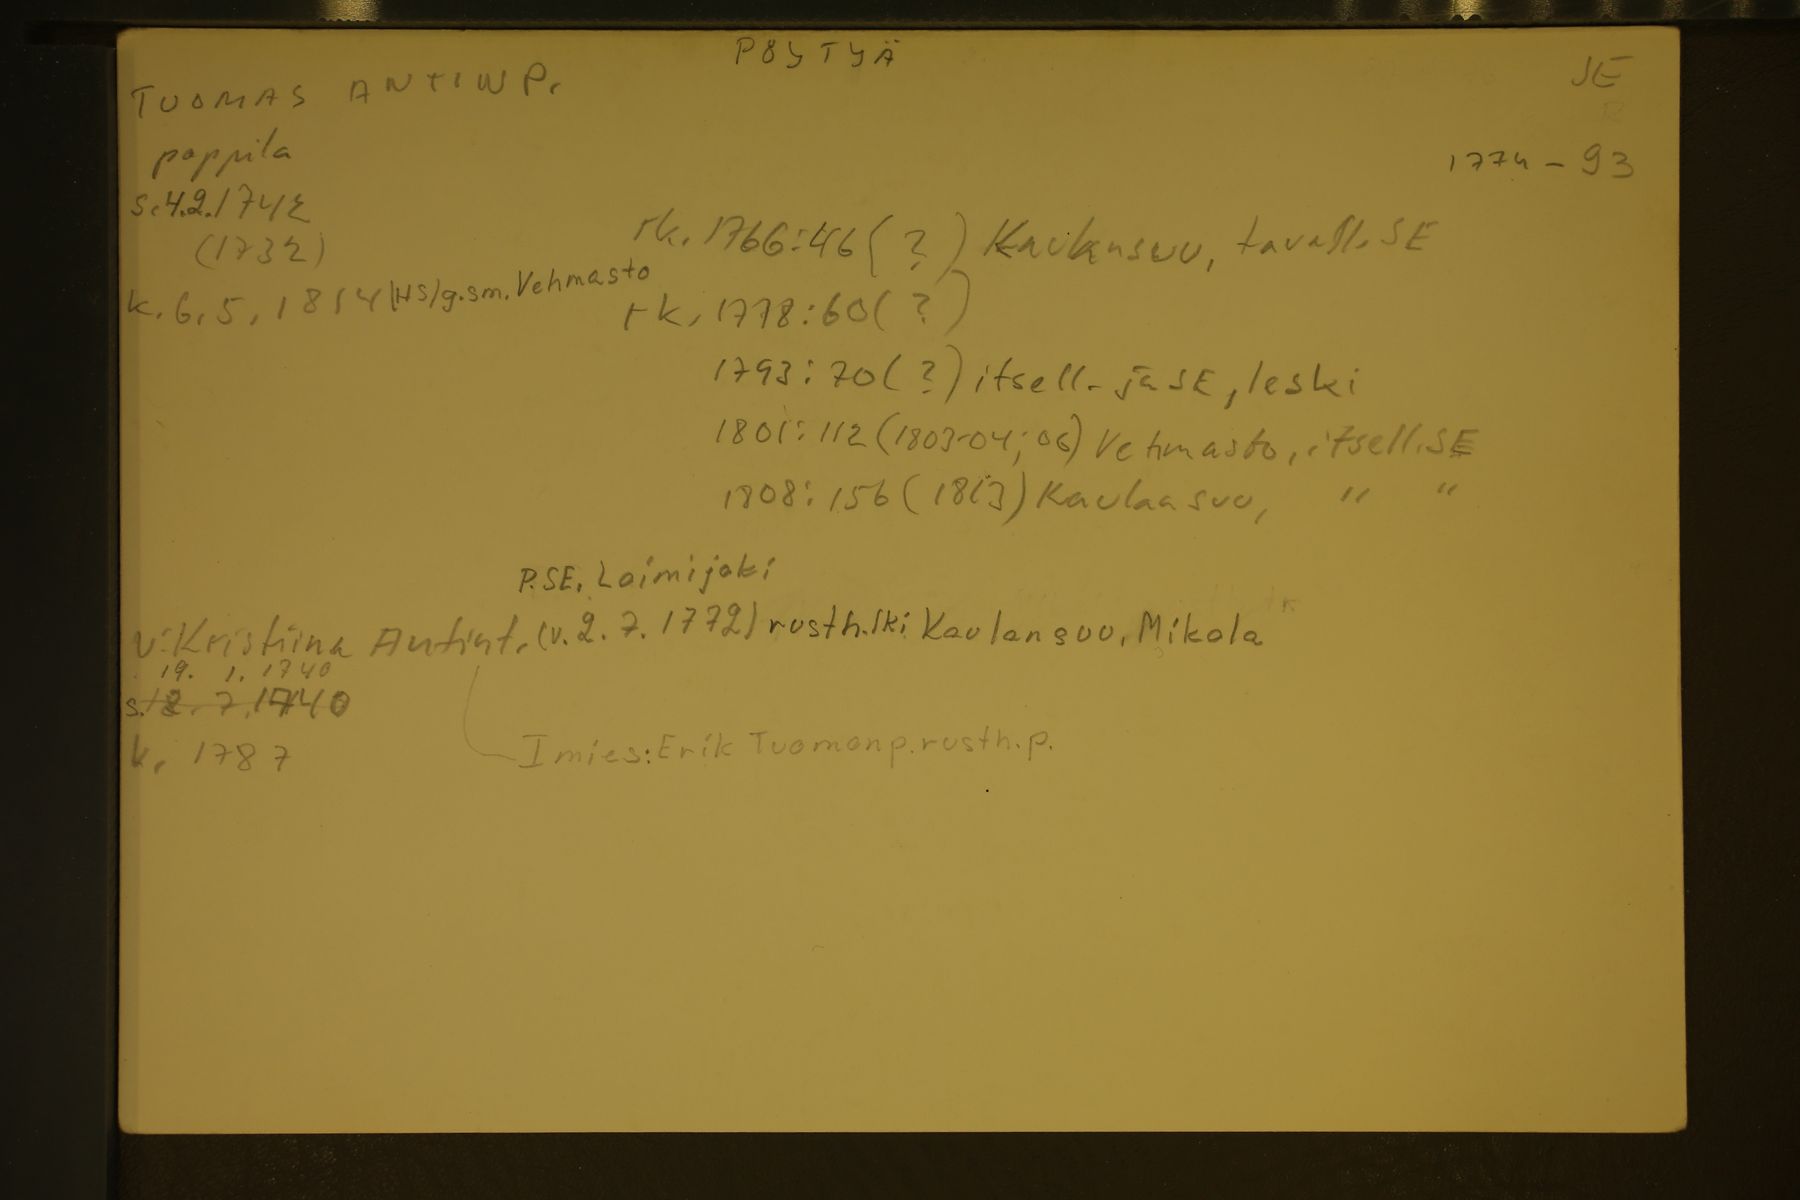 PÖYTYÄ
SE
TUOMAS ANTINP.
pappila
1774-93
s. 4.2.1742
(1732)
rk. 1766:46(?) Kaulansuu, tavall. SE
k. 6.5.1814 (HS/g.sm. Vehmasto
rk. 1778:60(?)
1793:70(?) itsell. ja SE, leski
1801:112(1803-04; 06) Vehmasto, itsell. SE
1808:156(1813) Kaulaasuu, " "
P.SE. Loimijoki
v: Kristiina Antint. (v. 2.7.1772) rusth.lki Kaulansuu, Mikola
19. 1. 1740
s. 12. 7. 1740
k. 1787
I mies: Erik Tuomonp. rusth.p.